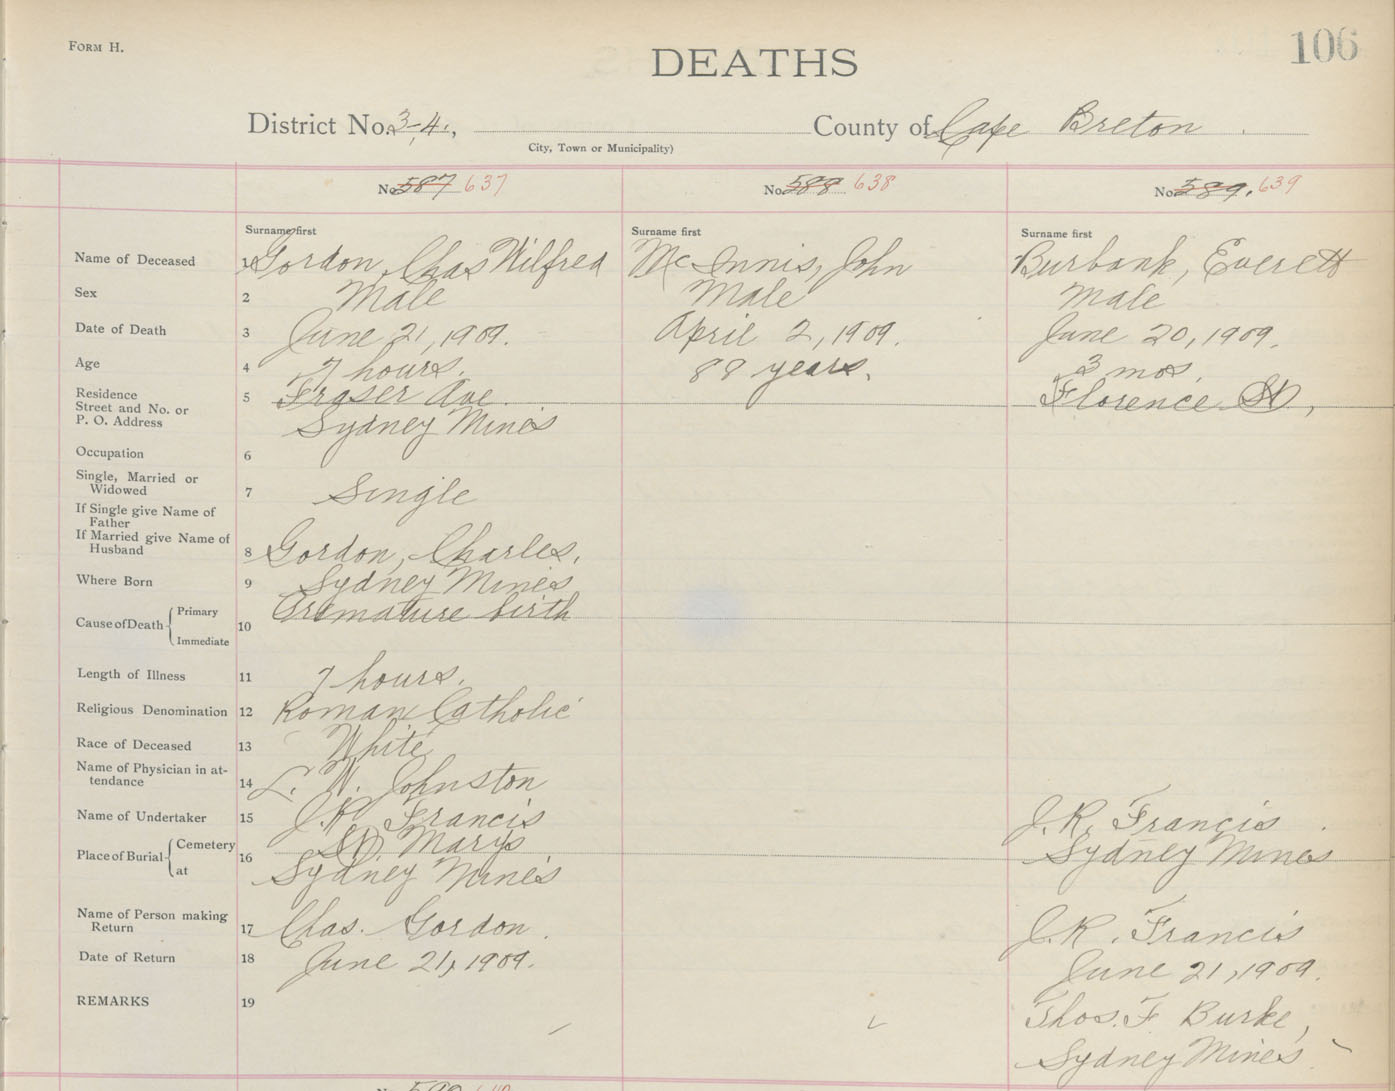 FORM H.
106
DEATHS
District No. 3-4., County of Cape Breton
City, Town or Municipality)
No. 587 637 No. 588 638 No. 589. 639
Surname first Surname first Surname first
Name of Deceased 1 Gordon, Chas Wilfred McInnis, John Burbank, Everett
Sex 2 Male Male Male
Date of Death 3 June 21, 1909. April 2, 1909. June 20, 1909.
Age 4 7 hours. 88 years. 3 mos.
Residence
Street and No. or
P. O. Address
5 Fraser Ave. Florence St,
Sydney Mines
Occupation 6
Single, Married or
Widowed
7 Single
If Single give Name of
Father
If Married give Name of
Husband
8 Gordon, Charles.
Where Born 9 Sydney Mines
Cause of Death Primary
Immediate
10 Premature birth
Length of Illness 11 7 hours.
Religious Denomination 12 Roman Catholic
Race of Deceased 13 White
Name of Physician in at-
tendance
14 L. W. Johnston
Name of Undertaker 15 J.R. Francis J.R. Francis
Place of Burial Cemetery
at
16 St Marys Sydney Mines
Sydney Mines
Name of Person making
Return
17 Chas. Gordon. J.R. Francis
Date of Return 18 June 21, 1909. June 21, 1909.
REMARKS 19 Thos. F. Burke,
Sydney Mines